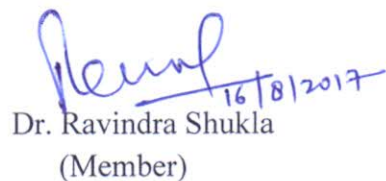 16/8/2017
Dr. Ravindra Shukla
(Member)